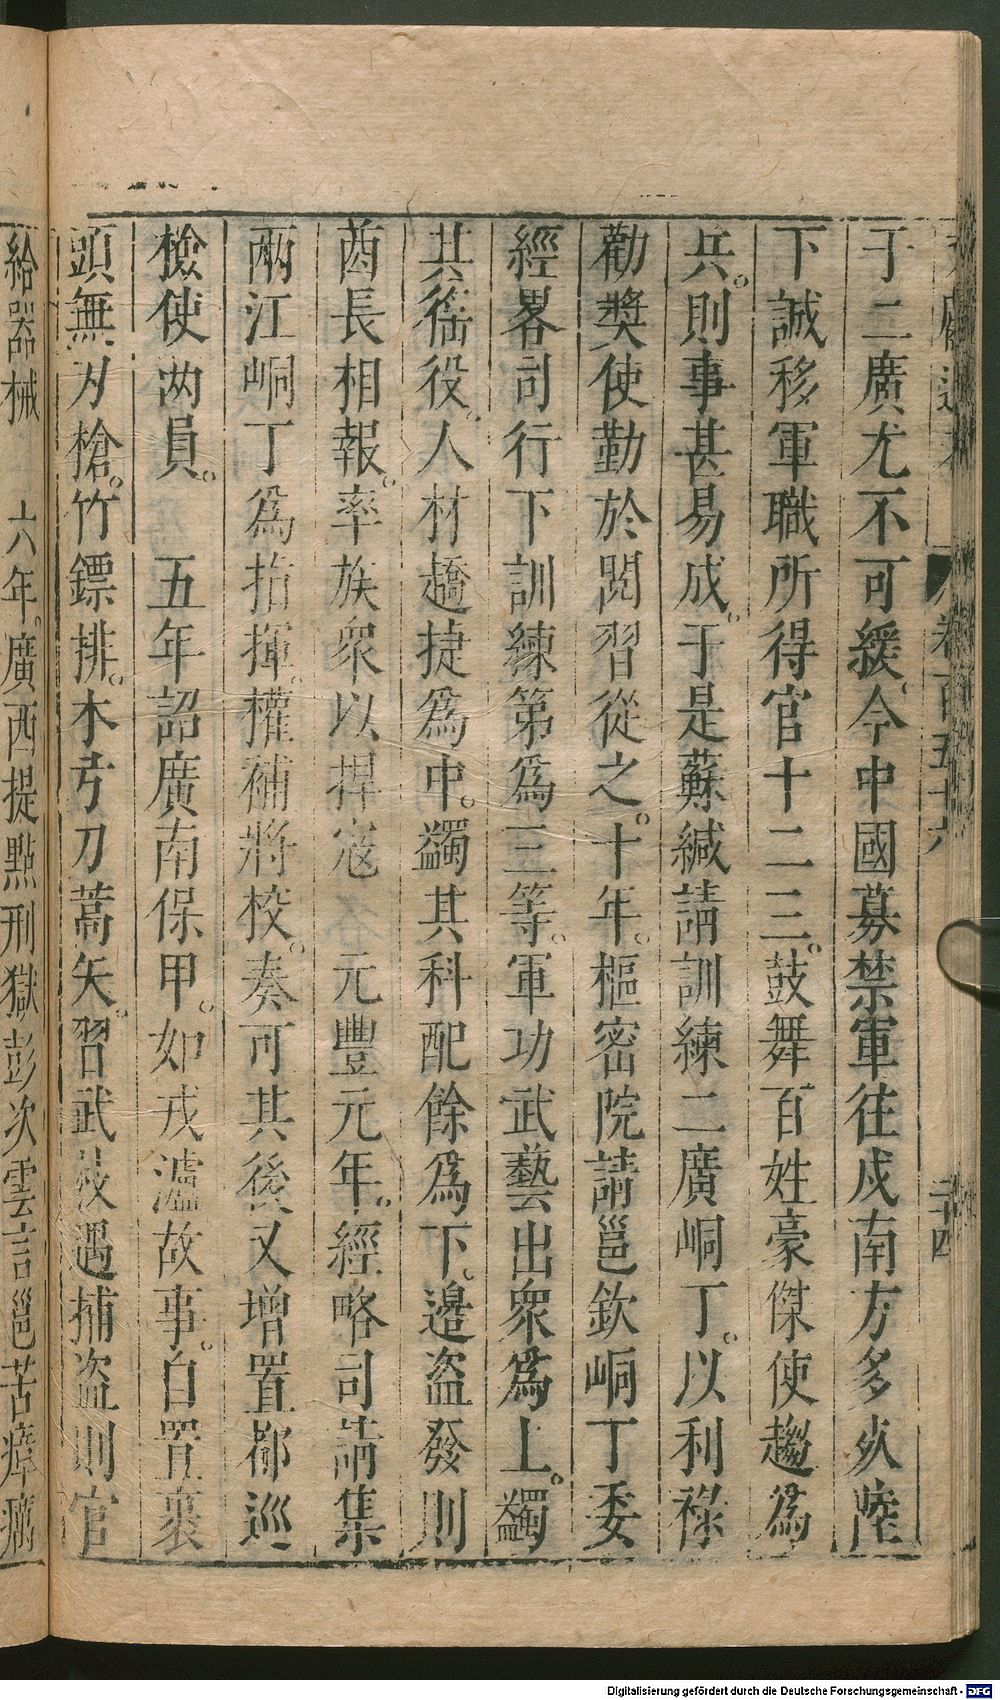 卷百五十六
二十四
于二廣尤不可緩今中國募禁軍往戍南方多死陸
下誠移軍職所得官十二三。鼓舞百姓豪傑使趨爲
兵。則事甚易成。于是蘇緘請訓練二廣峒丁。以利祿
勸奬使勤於閱習從之。十年。樞密院請邕欽峒丁委
經畧司行下訓練第爲三等。軍功武藝出衆爲上。蠲
其徭役。人材趫捷爲中。蠲其科配餘爲下。邉盜發則
酋長相報。率族衆以捍寇 元豐元年。經略司請集
兩江峒丁爲指揮。權補將校。奏可其後又增置都巡
檢使兩員。 五年詔廣南保甲。如戎瀘故事。自置裹
頭無刃槍。竹鏢排。木弓刀蒿矢。習武技遇捕盜則官
給器械 六年。廣西提點刑獄彭次雲言邕苦瘴癘
Digitalisierung gefördert durch die Deutsche Forschungsgemeinschaft - DFG